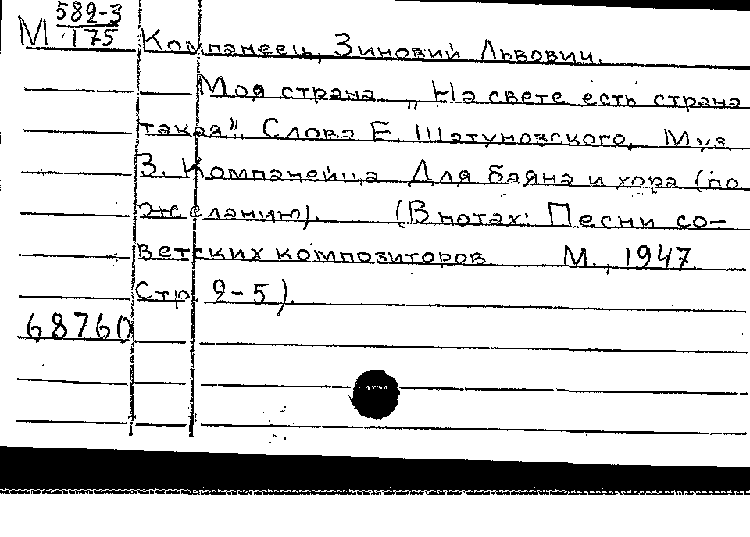 М 589-3/175 Компанеец, Зиновий Львович.
Моя страна. „На свете есть страна
такая". Слова Е. Шатуновского. Муз.
З. Компанейца. Для баяна и хора (по
желанию). (В нотах: Песни со-
ветских композиторов. М., 1947.
Стр. 2-5).
68760